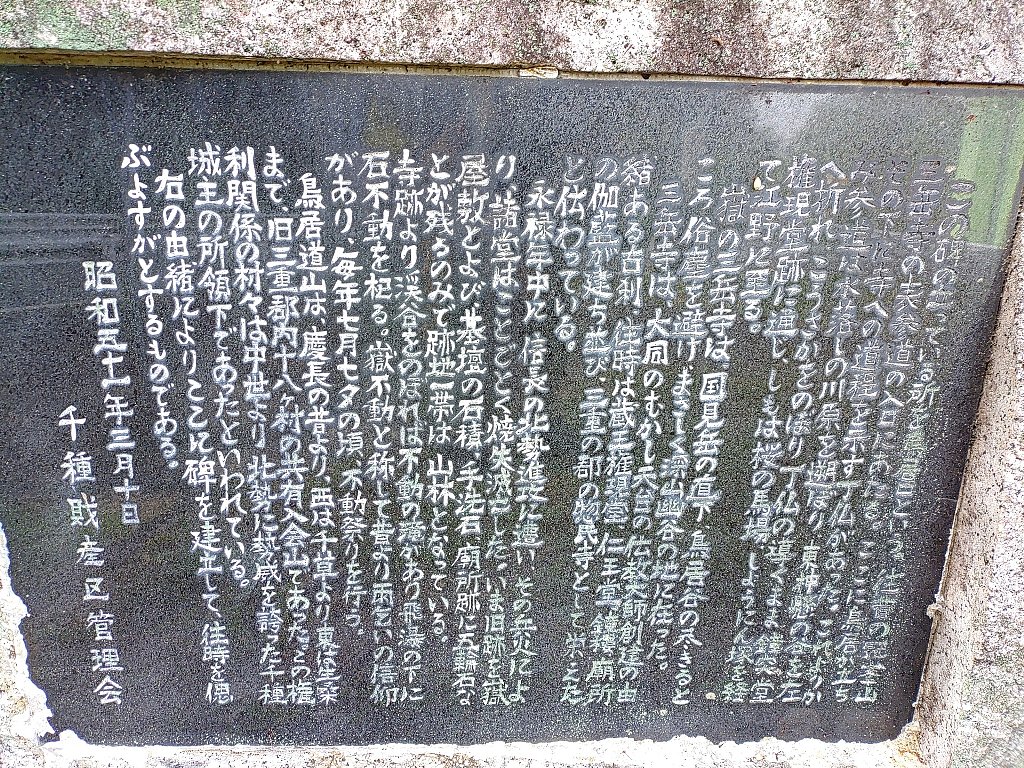 この碑の立っている所を鳥居道という。七堂の冠峯山
三岳寺の表参道の入口にあたる。ここに鳥居が立ち
その下に寺への道程を示す丁仏があった。これよりか
参道は水落しの川原を朔ぼり 東神 の谷を左
へ折れ、こうさかをのぼり丁仏の導くまま鐘突堂
権現堂跡に通じ、しもは桜の馬場 しょうにん塚を経
て江野に至る。
嶽の三岳寺は国見岳の直下鳥居谷の尽きると
ころ俗塵を避けまさしく深山幽谷の地に在った。
三岳寺は、大同のむかし天台の伝教大師創建の由
緒ある古刹、往時は蔵王権現堂 仁王堂 鐘楼 廟所
の伽藍が建ち並び三重の郡の物民寺として栄えた
と伝わっている。
永禄年中に信長の北勢進攻に遭い、その兵災によ
り、諸堂はことごとく焼失滅亡した。いま旧跡を嶽
屋敷とよび、基壇の石積、手洗石、廟所跡に五輪石な
とが残るのみて跡地一帯は、山林となっている。
寺跡より渓谷をのぼれは不動の滝かあり飛瀑の下に
石不動を祀る。嶽不動と称して昔より雨乞いの信仰
があり、毎年七月七夕の頃 不動祭りを行う。
鳥居道山は、慶長の昔より、西は千草より東は生桑
まで、旧三重郡内十八ヶ村の共有入会山であった。この権
利関係の村々は中世より北勢に勢威を誇った千種
城主の所領下であったといわれている。
右の由緒によりここに碑を建立して、往時を偲
ぶよすがとするものである。
昭和五十一年三月十日
千種財産区管理会